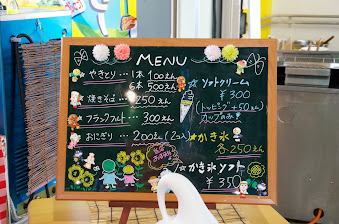 MENU
やきとり … 1本 100えん
6本 500えん
焼きそば … 250えん
フランクフルト … 300えん
おにぎり … 200えん (2コ入)
ソフトクリーム
¥300
(トッピング +50えん
カップのみ
かき氷
各250えん
かき氷ソフト
¥350